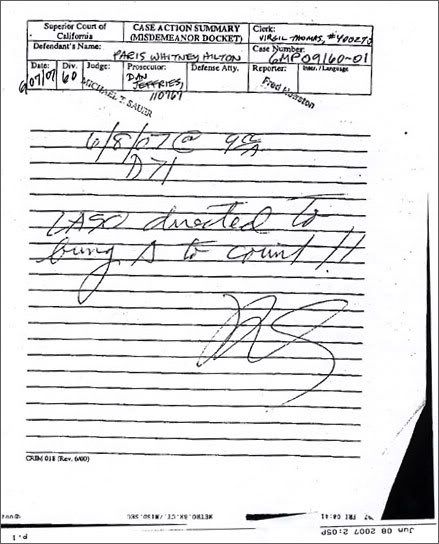 Superior Court of California
CASE ACTION SUMMARY
(MISDEMEANOR DOCKET)
Clerk:
VIRGIL THOMAS, #400270
Defendant's Name:
PARIS WHITNEY HILTON
Case Number:
6MP09160-01
Date:
6/07/07
Div.
60
Judge:
MICHAEL T. SAUER
Prosecutor:
DAN JEFFRIES,
110767
Defense Atty.
Reporter:
Fred Houston
Inter./Language
6/8/07 @ 9
D71
LASO directed to
bring Δ to court !!
CRIM 018 (Rev. 6/00)
METRO.BK.CT./MISD.SEC.
FRI 08:41
Jun 08 2007 2:05P
p.1